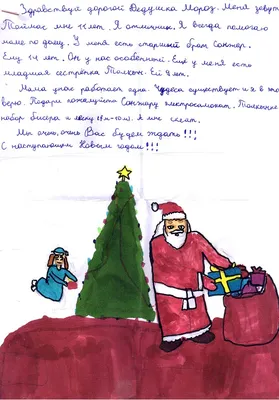 Здравствуй дорогой Дедушка Мороз. Меня зовут
мне 11 лет. Я отличник. Я всегда помогаю
маме по дому. У меня есть старший брат Санжар.
Ему 14 лет. Он у нас особенный. Ещё у меня есть
младшая сестрёнка Толкын. Ей 9 лет.
Мама у нас работает одна. Чудеса существует и я в это
верю. Подари пожалуйста Санжару электросамокат. Толкыне
набор бисера и леску. А мне
Мы очень, очень Вас будем ждать!!!
С наступающим Новым годом!!!